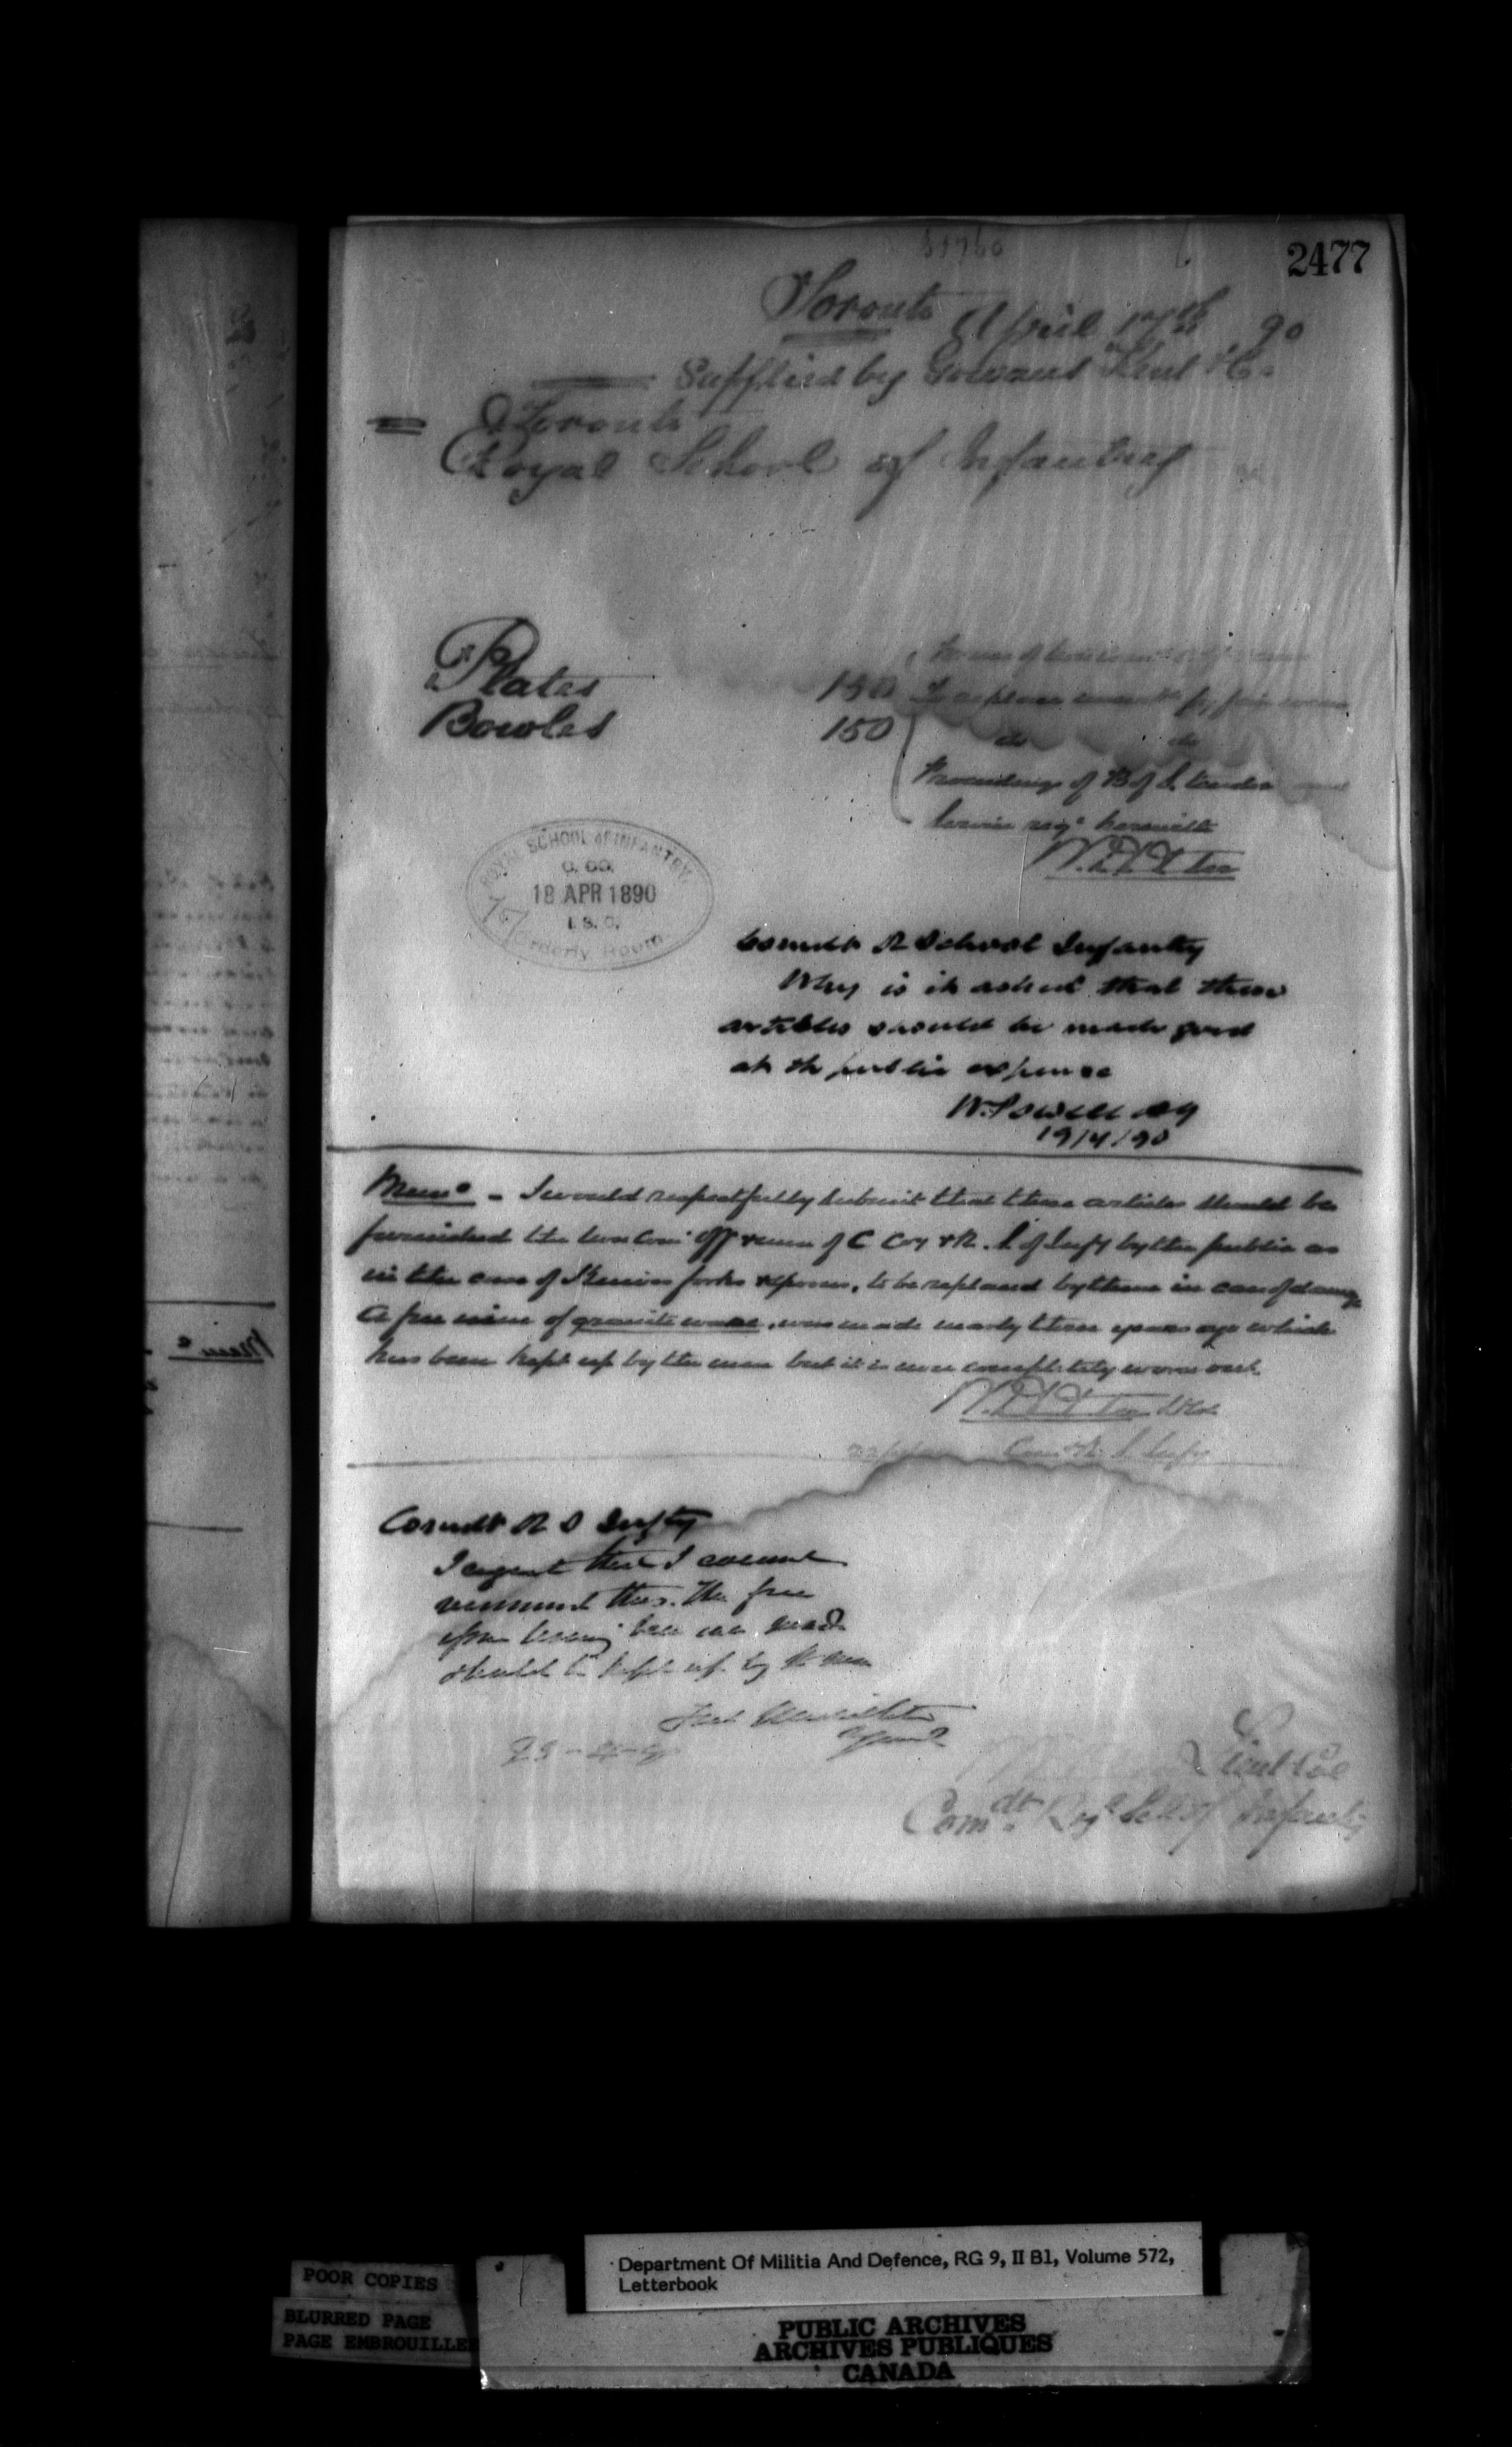 51760
2477
Toronto April 17th 90
Supplied by Gowans Kent & Co.
Toronto
Royal School of Infantry
For use of
Plates 150 To replace
Bowles 150 do do
Proceedings of B of
Service reqn herewith
W.D. Otter
ROYAL SCHOOL of INFANTRY.
C. CO.
18 APR 1890
I. S. C.
Orderly Room
Comdt R School Infantry
Why is it asked that these
articles should be made good
at the public expense
W. Powell AG
19/4/90
Memo - I would respectfully submit that these articles should be
furnished the non com: off & men of C Coy & R. S of Infy by the public as
in the case of Knives forks & spoons, to be replaced by them in case of damage
A free issue of granite ware, was made nearly three years ago which
has been kept up by the men but it is now completely worn out
W.D. Otter Lt Col
Com R. S Infy
Comdt R S Infty
I regret that I cannot
recommend this. The free
issue having been once made
should be kept up by the men
Fred Middleton
23-4-90
Lieut Col
Comdt. Royl School Infantry
Department Of Militia And Defence, RG 9, II B1, Volume 572,
Letterbook
POOR COPIES
BLURRED PAGE
PAGE EMBROUILLEE
PUBLIC ARCHIVES
ARCHIVES PUBLIQUES
CANADA